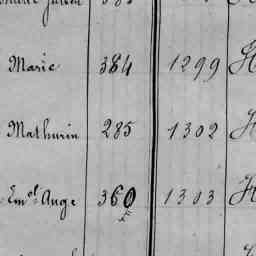 Marie 384 1299 H
Mathurin 285 1302 H
Em.el Ange 360 1303 H